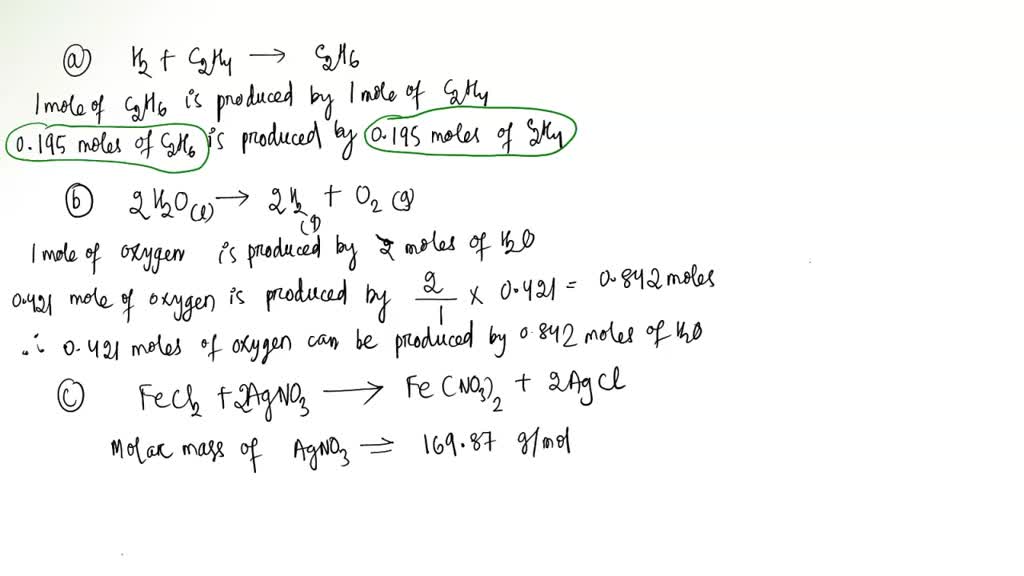 (a) H2 + C2H4 → C2H6
1 mole of C2H6 is produced by 1 mole of C2H4
0.195 moles of C2H6 is produced by 0.195 moles of C2H4
(b) 2H2O(l) → 2H2(g) + O2(g)
1 mole of oxygen is produced by 2 moles of H2O
0.421 mole of oxygen is produced by 2/1 × 0.421 = 0.842 moles
∴ 0.421 moles of oxygen can be produced by 0.842 moles of H2O
(c) FeCl2 + 2AgNO3 → Fe(NO3)2 + 2AgCl
Molar mass of AgNO3 = 169.87 g/mol